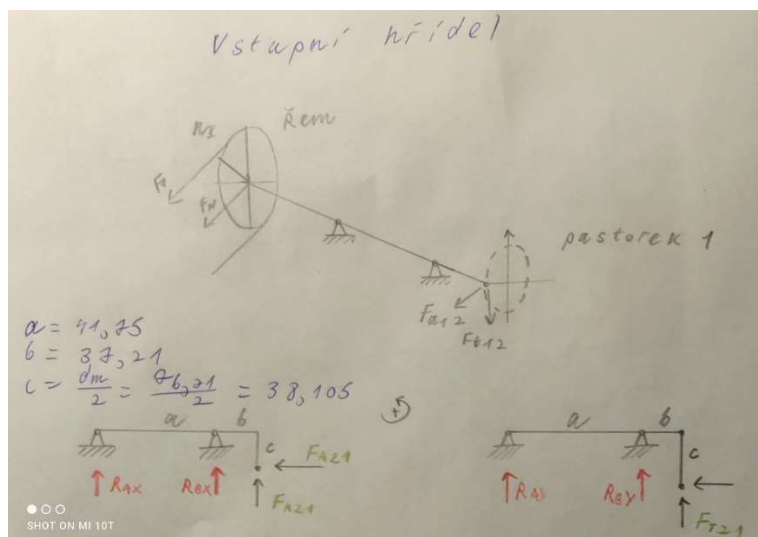 Vstupní hřídel
Řem
pastorek 1
Fa12
Ft12
a = 41,75
b = 37,21
c = dm/2 = 76,21/2 = 38,105
a b
c
FA21
RAX RBX
FR21
a b
c
RAY RBY
FT21
SHOT ON MI 10T